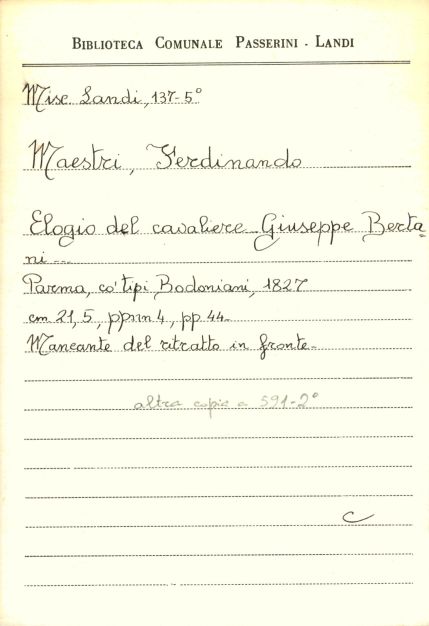 BIBLIOTECA COMUNALE PASSERINI - LANDI
Misc. Landi, 137-5°
Maestri, Ferdinando
Elogio del cavaliere Giuseppe Berta=
ni ...
Parma, co' tipi Bodoniani, 1827
cm 21,5, ppnn 4, pp. 44.
Mancante del ritratto in fronte.
altra copia a 591-2°
C